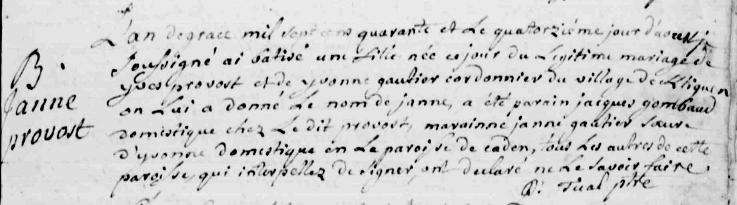 B.
Janne
provost
L'an de grace mil sept cens quarante et Le quatorziéme jour d'aout je
soussigné ai batisé une fille née ce jour du Legitime mariage de
yves provost et de yvonne gautier cordonnier du village de
on Lui a donné Le nom de janne, a été parain jacques gombaud
domestique chez Le dit provost, marainne janne gautier soeure
d'yvonne domestique en La paroisse de caden, tous Les autres de cette
paroisse, qui interpellez de signer ont declaré ne Le savoir faire.
R: Tual ptre